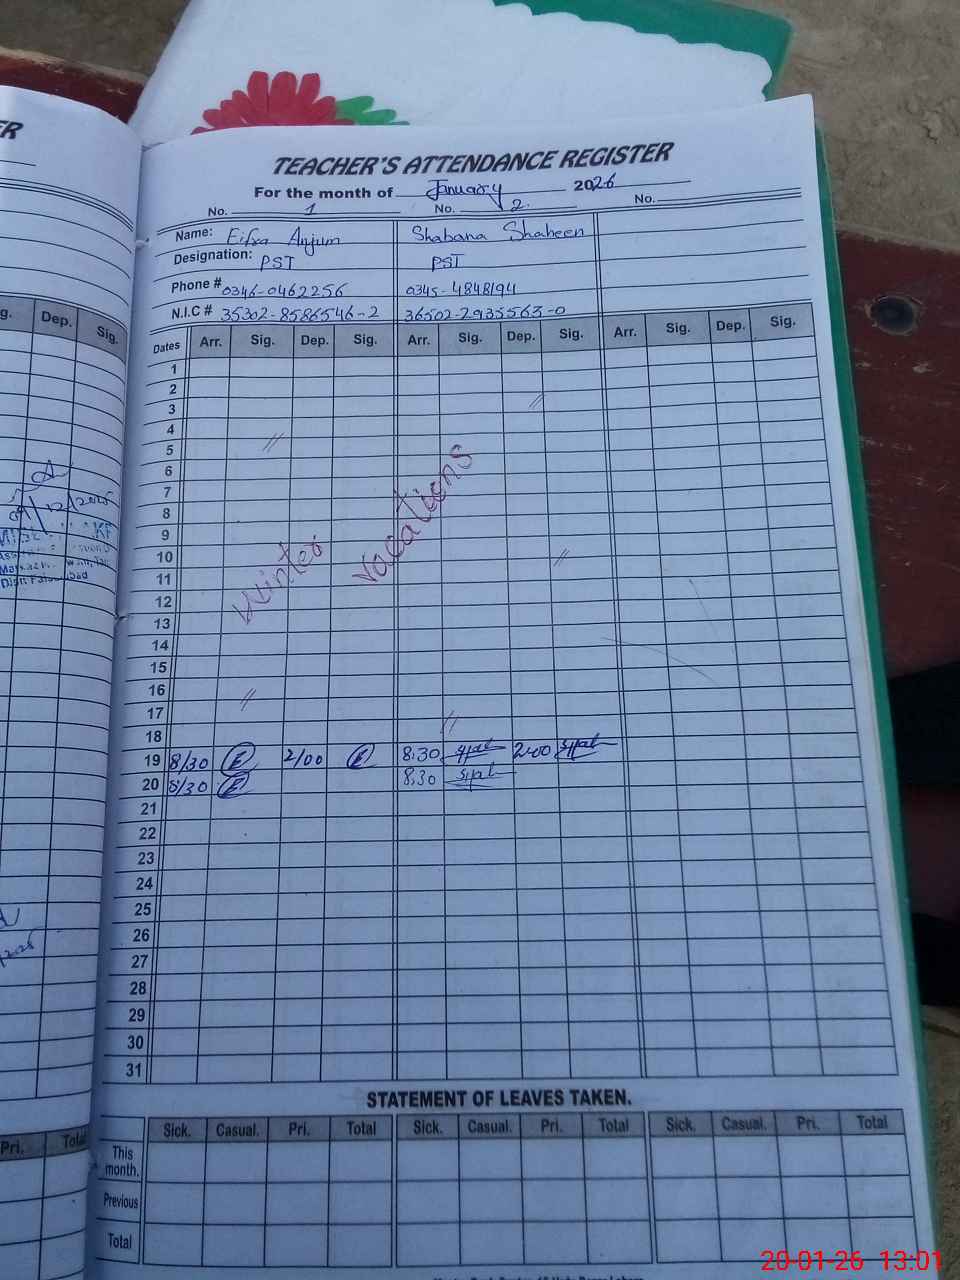 ER
TEACHER'S ATTENDANCE REGISTER
For the month of January 2026
No. 1 No. 2. No.
Name: Eifra Anjum Shabana Shaheen
Designation: PST PST
Phone # 0346-0462256 0345-4848194
N.I.C # 35302-8586546-2 36502-2935563-0
g. Dep. Sig.
Dates Arr. Sig. Dep. Sig. Arr. Sig. Dep. Sig. Arr. Sig. Dep. Sig.
1
2
3
4
5
6
7
8
9
10
11
12
13
14
15
16
17
18
Winter Vacations
19 8/30 E 2/00 E 8:30 2:00
20 8/30 E 8:30
21
22
23
24
25
26
27
28
29
30
31
STATEMENT OF LEAVES TAKEN.
Pri. Total
Sick. Casual. Pri. Total Sick. Casual. Pri. Total Sick. Casual. Pri. Total
This month.
Previous
Total
20-01-26 13:01